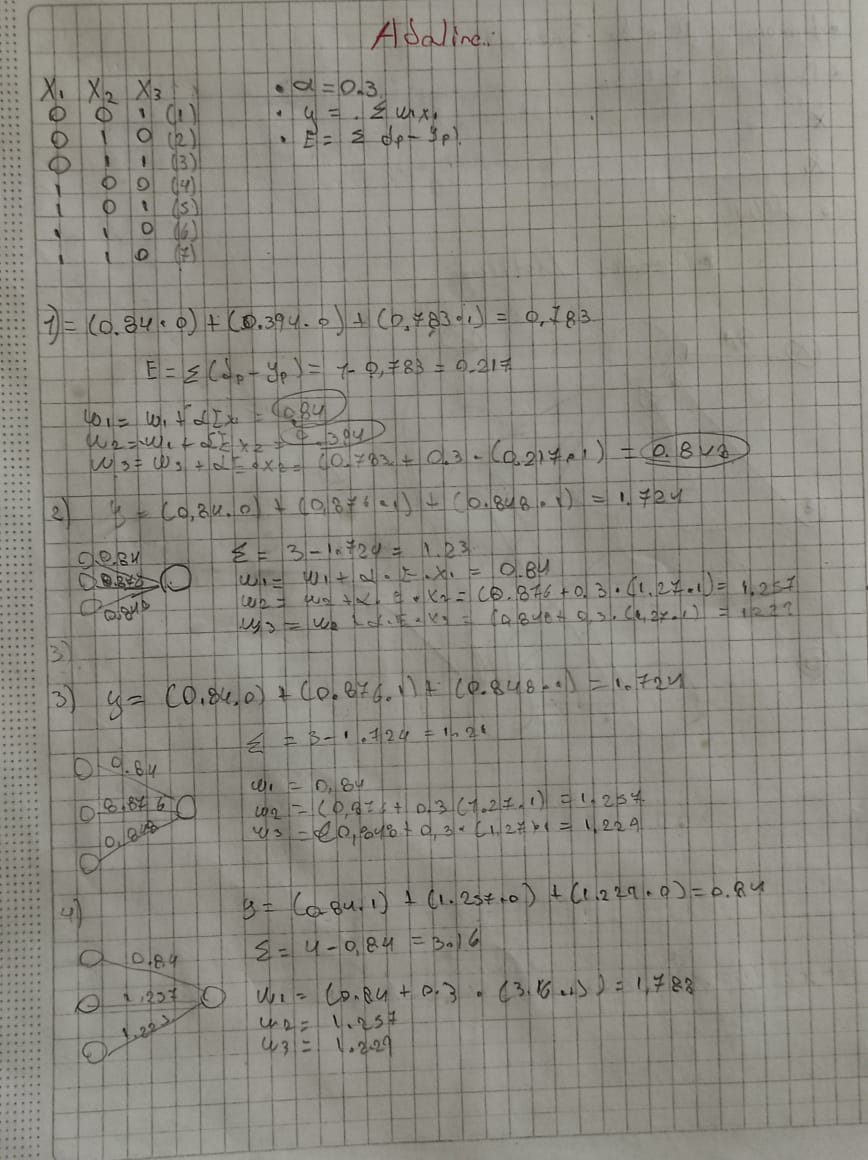 Adaline.
X1 X2 X3
0 0 1 (1)
0 1 0 (2)
0 1 1 (3)
1 0 0 (4)
1 0 1 (5)
1 1 0 (6)
1 1 0 (7)
• α = 0.3
• y = Σ wixi
• E = Σ dp - yp)
1) = (0.84 · 0) + (0.394 · 0) + (0,783 · 1) = 0,783
E = Σ (dp - yp) = 1 - 0,783 = 0.217
w1 = w1 + αEx1 = 0,84
w2 = w1 + αEx2 = 0.394
w3 = w3 + αE x2 = (0.783 + 0.3 · (0,217 · 1) = 0.848
2) y = (0,84.0) + (0,876 · 1) + (0.848 · 1) = 1.724
0.84
0.876
0.848
Σ = 3 - 1.724 = 1.23
w1 = w1 + α · E · x1 = 0.84
w2 = w2 + α · E · x2 = (0.876 + 0.3 · (1.27 · 1) = 1,257
w3 = w3 + α · E · x3 = (0,848 + 0,3 · (1,27 · 1) = 1,229
3)
3) y = (0.84.0) + (0.876.1) + (0.848 · 1) = 1.724
Σ = 3 - 1.724 = 1.27
0.84
0.876
0.848
w1 = 0,84
w2 = (0,876 + 0.3 (1.27 · 1) = 1,257
w3 = (0,848 + 0,3 · (1,27 · 1 = 1,229
4) y = (0.84.1) + (1.257.0) + (1.229 · 0) = 0.84
0.84
1,257
1.229
Σ = 4 - 0,84 = 3.16
w1 = (0.84 + 0.3 · (3.16 · 1) = 1,788
w2 = 1.257
w3 = 1.229